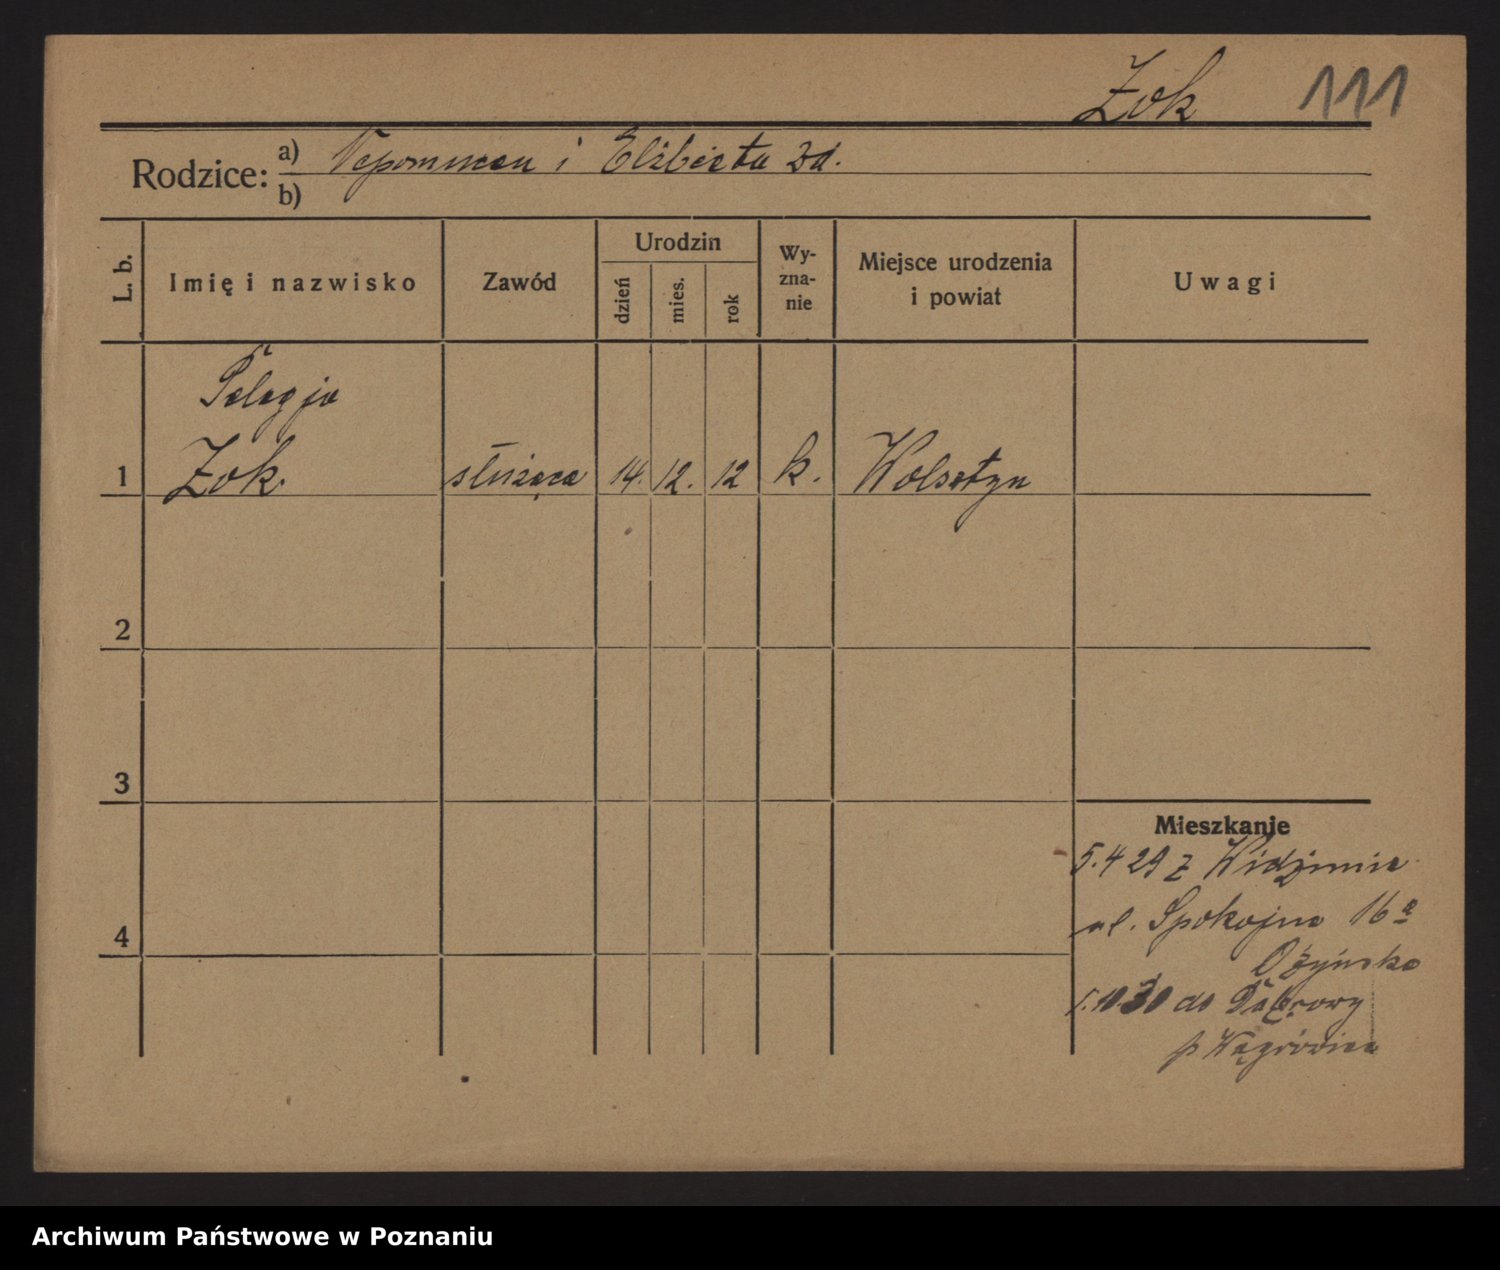 Żok 111
Rodzice: a) Nepomucen i Elżbieta zd.
b)
L. b.
Imię i nazwisko
Zawód
Urodzin
dzień
mies.
rok
Wy-
zna-
nie
Miejsce urodzenia
i powiat
Uwagi
Pelagja
1 Żok. służąca 14. 12. 12 k. Wolsztyn
2
3
4
Mieszkanie
5.4 29 z Widzimia
ul. Spokojna 16a
10.30 do Dąbrowy
p Wągrówiec
Archiwum Państwowe w Poznaniu